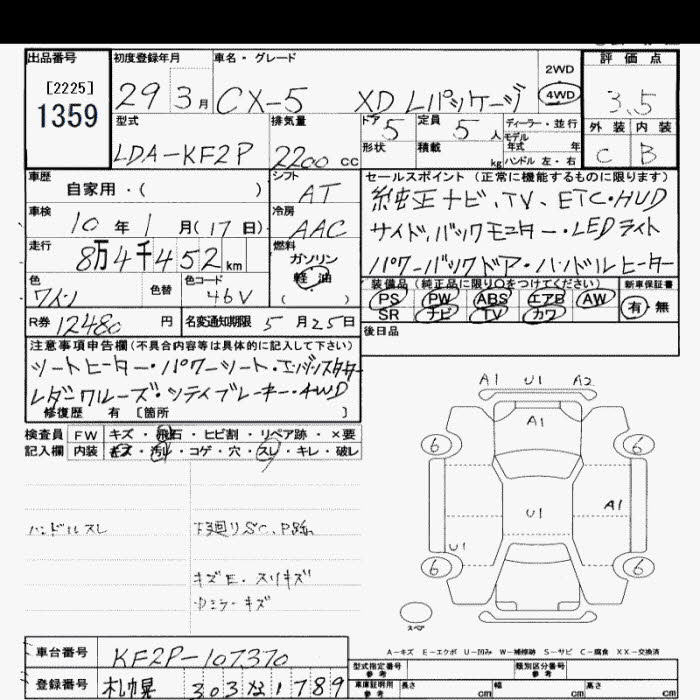 出品番号 初度登録年月 車名・グレード 評価点
[2225] 2WD
1359 29 3月 CX-5 XD Lパッケージ 4WD 3.5
型式 排気量 ドア 定員 ディーラー・並行 外装 内装
LDA-KF2P 2200cc 5 5人 モデル年式 年 C B
形状 積載 kg ハンドル 左・右
車歴 シフト セールスポイント (正常に機能するものに限ります)
自家用・( ) AT 純正ナビ、TV、ETC・HUD
車検 冷房 サイド、バックモニター・LEDライト
10年1月(17日) AAC パワーバックドア・ハンドルヒーター
走行 燃料 装備品 (純正品に限り○をつけてください) 新車保証書
8万4千452km ガソリン 軽油 ( ) PS PW ABS エアB AW 有・無
色 色替 色コード SR ナビ TV カワ
ワイン 46V 後日品
R券 12480円 名変通知期限 5月25日
注意事項申告欄 (不具合内容等は具体的に記入して下さい)
シートヒーター・パワーシート・
・4WD
修復歴 有 [箇所 ]
検査員 FW キズ・飛石・ヒビ割・リペア跡・×要
記入欄 内装 キズ・汚れ・コゲ・穴・スレ・キレ・破レ
A1 U1 A2
A1
6 6
U1 A1
U1
6 6
ハンドルスレ 下廻りSC、P跡
キズE・スリキズ
キズ
スペア
A-キズ E-エクボ U-凹み W-補修跡 S-サビ C-腐食 XX-交換済
車台番号 KF2P-107370 型式指定番号 参考 類別区分番号 参考
登録番号 札幌 303 1789 車庫証明用 参考 長さ cm 幅 cm 高さ cm